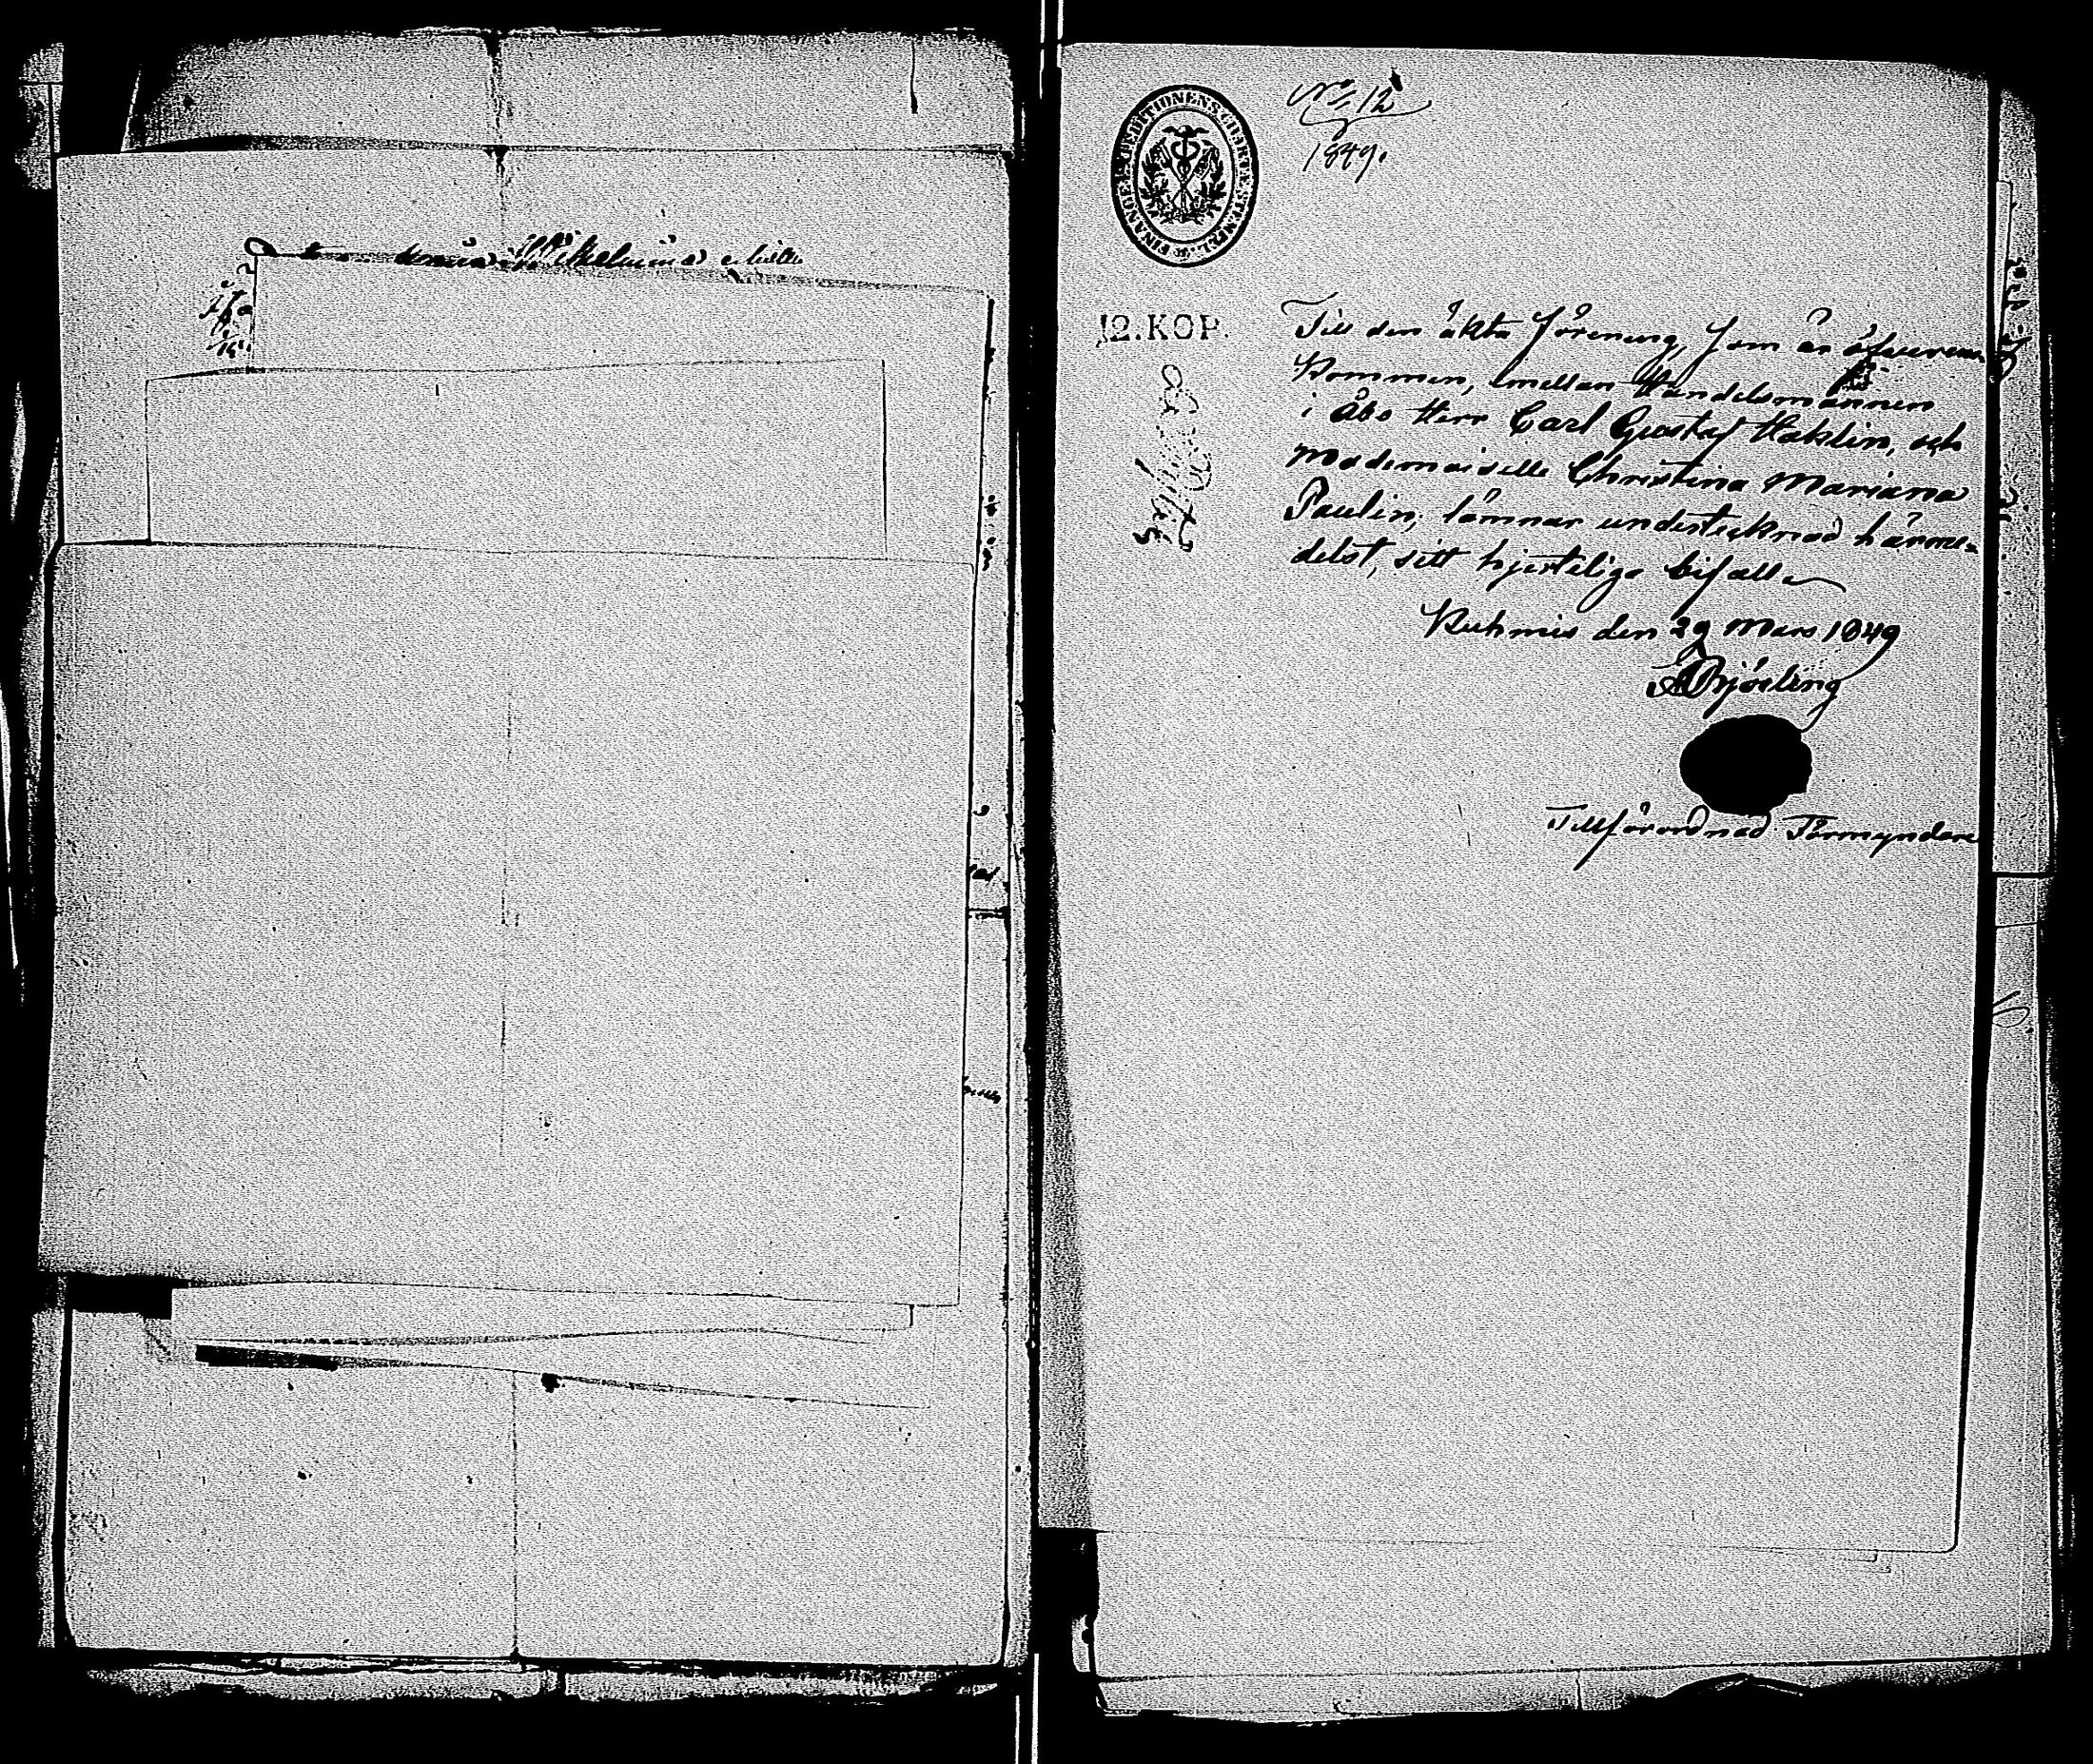 Wilhelmina
No 12
1849.
FINANCE EXPEDITIONENS CHARTÆ STEMPEL
12. KOP.
Till den äkta förening, som är öfverens
kommen, emellan Handelsmannen
i Åbo Herr Carl Gustaf Heklin, och
Mademoiselle Christina Mariana
Paulin, lämnar undertecknad härme-
delst, sitt hjertliga bifall
Kuhmis den 29 Mars 1849
A Björling
Tillförordnad Förmyndare